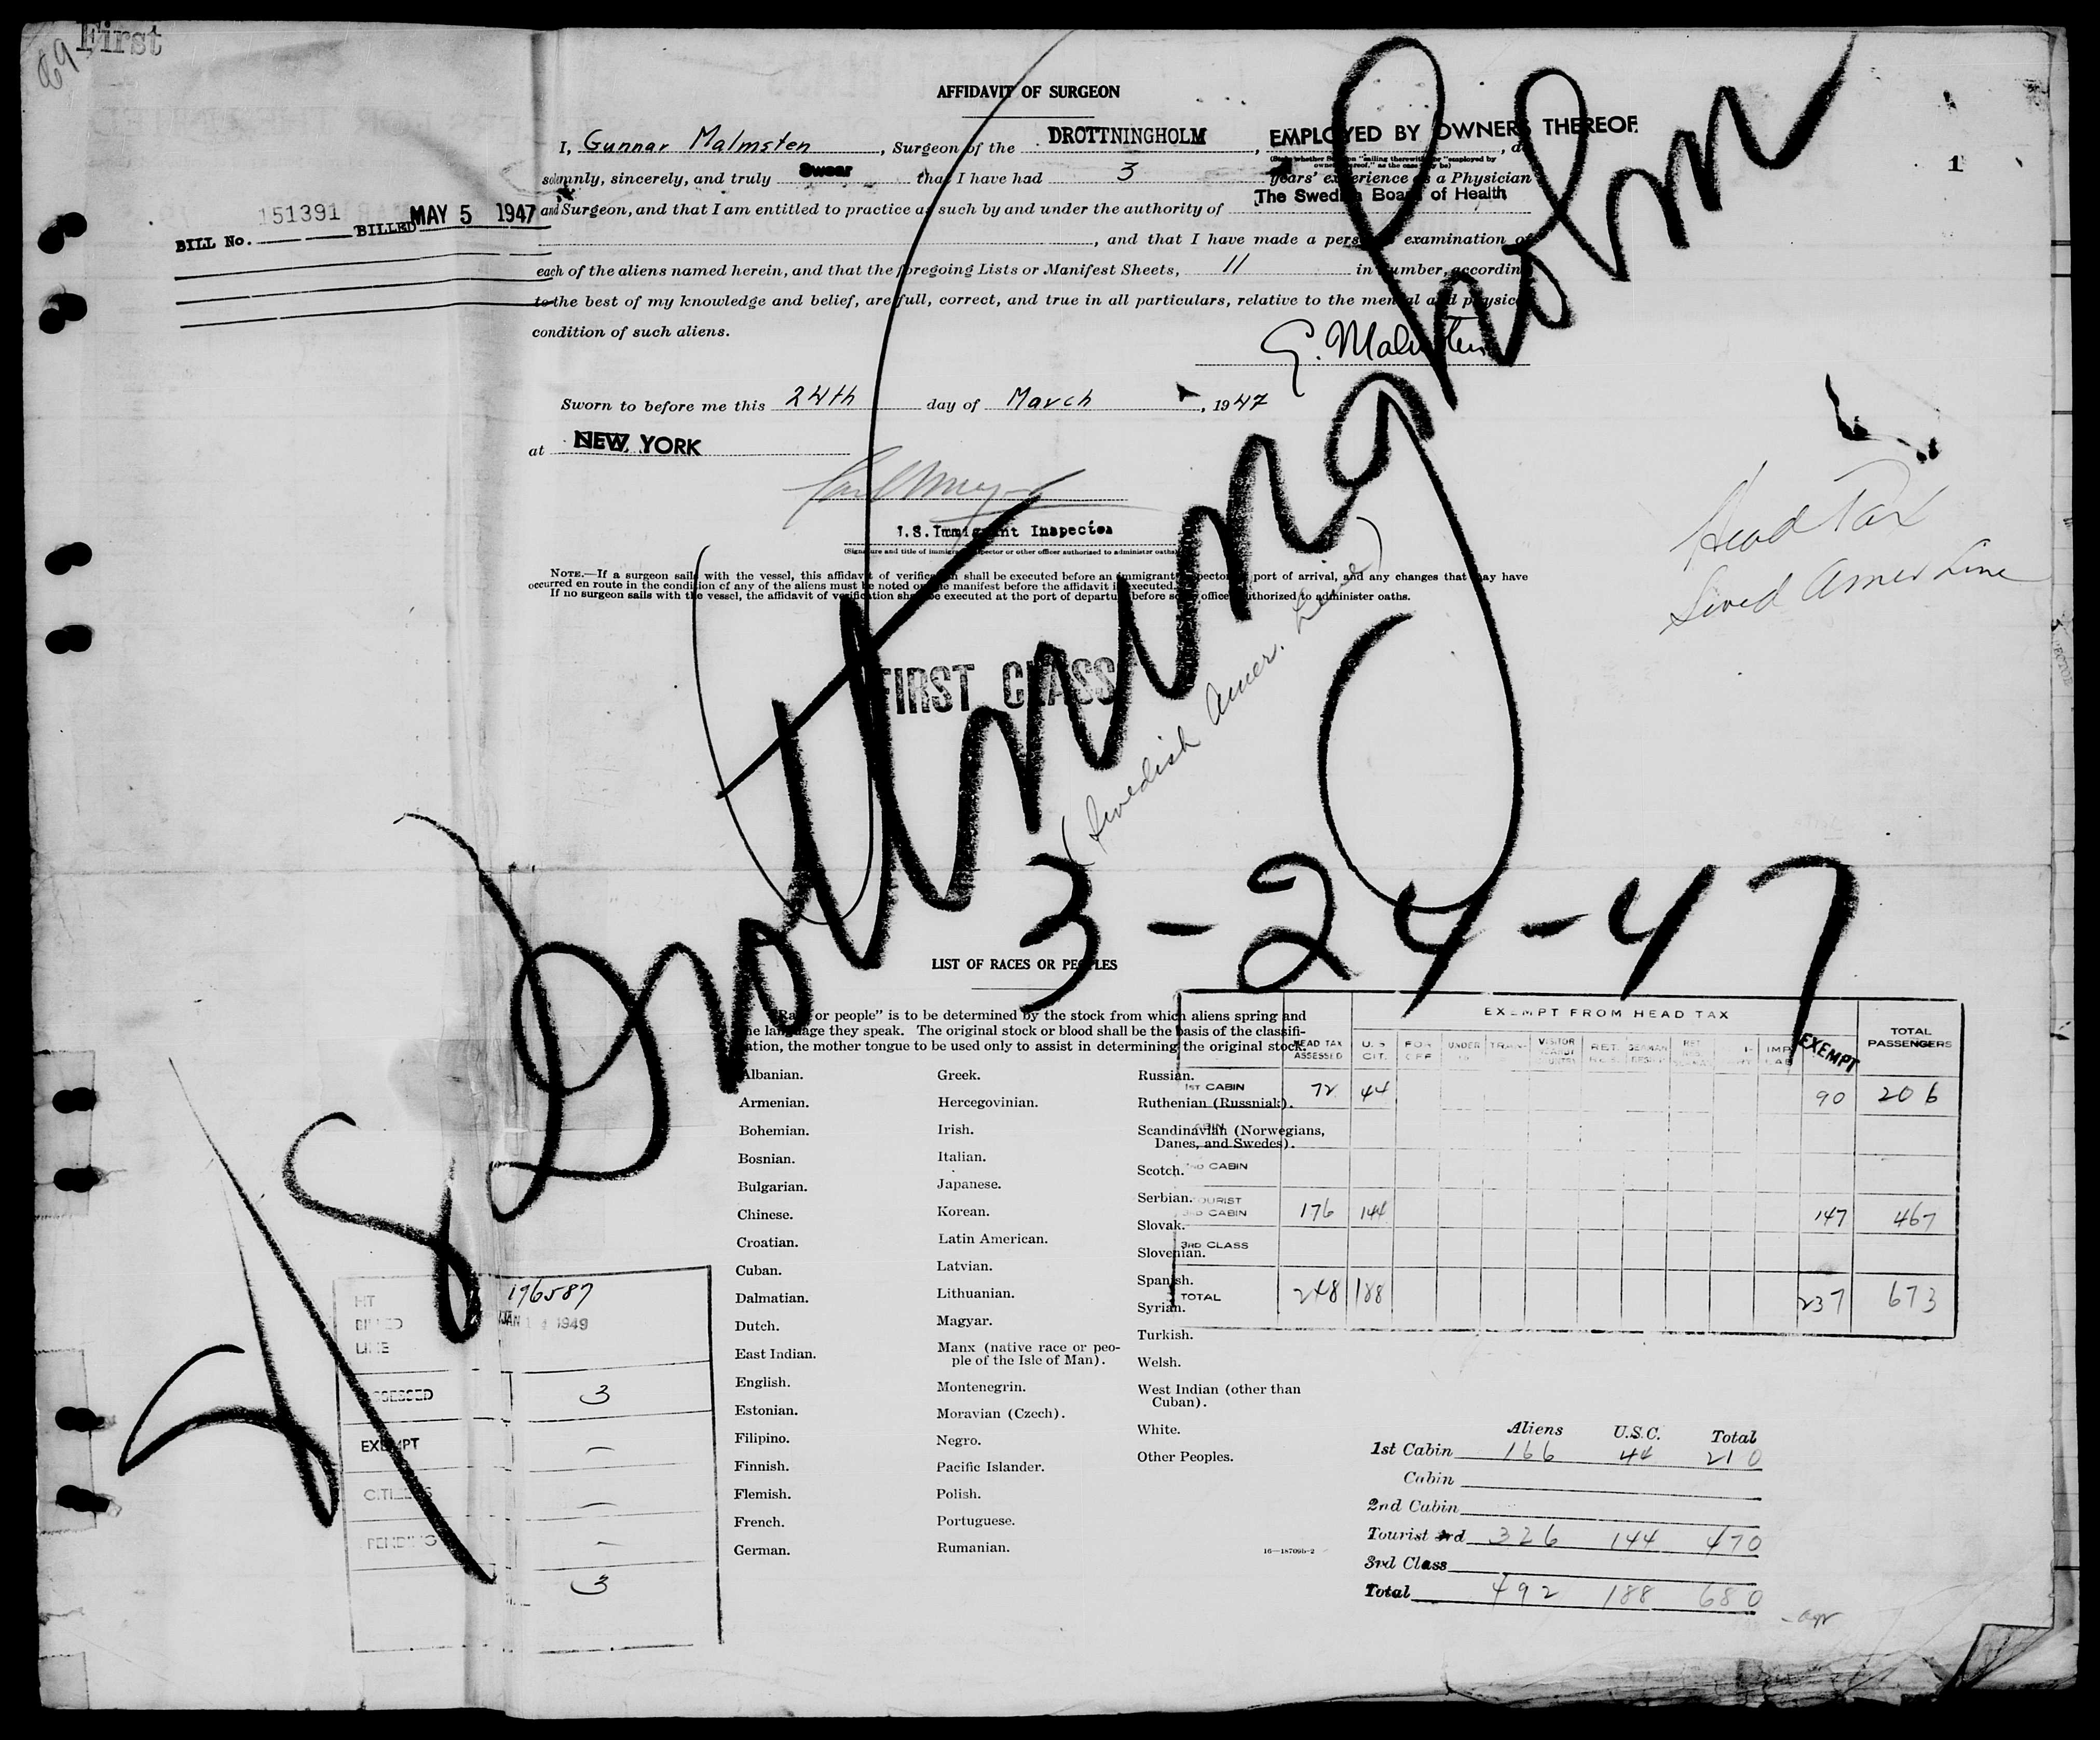 First
69
AFFIDAVIT OF SURGEON
1
I, Gunnar Malmsten, Surgeon of the DROTTNINGHOLM, EMPLOYED BY OWNERS THEREOF, d
(State whether Surgeon "sailing therewith" or "employed by
owners thereof," as the case may be)
solemnly, sincerely, and truly Swear that I have had 3 years' experience as a Physician
The Swedish Board of Health
and Surgeon, and that I am entitled to practice as such by and under the authority of
151391 MAY 5 1947
BILL No. BILLED
, and that I have made a personal examination of
each of the aliens named herein, and that the foregoing Lists or Manifest Sheets, 11 in number, according
to the best of my knowledge and belief, are full, correct, and true in all particulars, relative to the mental and physical
condition of such aliens.
G. Malmsten
Sworn to before me this 24th day of March, 1947
at NEW YORK
U.S. Immigrant Inspector
(Signature and title of immigrant inspector or other officer authorized to administer oaths)
Head Tax
Swed Amer Line
NOTE.—If a surgeon sails with the vessel, this affidavit of verification shall be executed before an immigrant inspector at port of arrival, and any changes that may have
occurred en route in the condition of any of the aliens must be noted on the manifest before the affidavit is executed.
If no surgeon sails with the vessel, the affidavit of verification shall be executed at the port of departure before some officer authorized to administer oaths.
FIRST CLASS
Drottningholm
(Swedish Amer. Line)
3-24-47
LIST OF RACES OR PEOPLES
"Race or people" is to be determined by the stock from which aliens spring and
the language they speak. The original stock or blood shall be the basis of the classifi-
cation, the mother tongue to be used only to assist in determining the original stock.
Albanian.
Armenian.
Bohemian.
Bosnian.
Bulgarian.
Chinese.
Croatian.
Cuban.
Dalmatian.
Dutch.
East Indian.
English.
Estonian.
Filipino.
Finnish.
Flemish.
French.
German.
Greek.
Hercegovinian.
Irish.
Italian.
Japanese.
Korean.
Latin American.
Latvian.
Lithuanian.
Magyar.
Manx (native race or peo-
ple of the Isle of Man).
Montenegrin.
Moravian (Czech).
Negro.
Pacific Islander.
Polish.
Portuguese.
Rumanian.
Russian.
Ruthenian (Russniak).
Scandinavian (Norwegians,
Danes, and Swedes).
Scotch.
Serbian.
Slovak.
Slovenian.
Spanish.
Syrian.
Turkish.
Welsh.
West Indian (other than
Cuban).
White.
Other Peoples.
16—18709b-2
EXEMPT FROM HEAD TAX
HEAD TAX ASSESSED U.S. CIT. UNDER EXEMPT TOTAL PASSENGERS
1ST CABIN 72 44 90 206
CABIN
2ND CABIN
TOURIST 3RD CABIN 176 144 147 467
3RD CLASS
TOTAL 248 188 237 673
HT 176587
BILLED JAN 1949
LINE
ASSESSED 3
EXEMPT —
CITIZENS —
PENDING —
3
Aliens U.S.C. Total
1st Cabin 166 44 210
Cabin
2nd Cabin
Tourist 3rd 326 144 470
3rd Class
Total 492 188 680